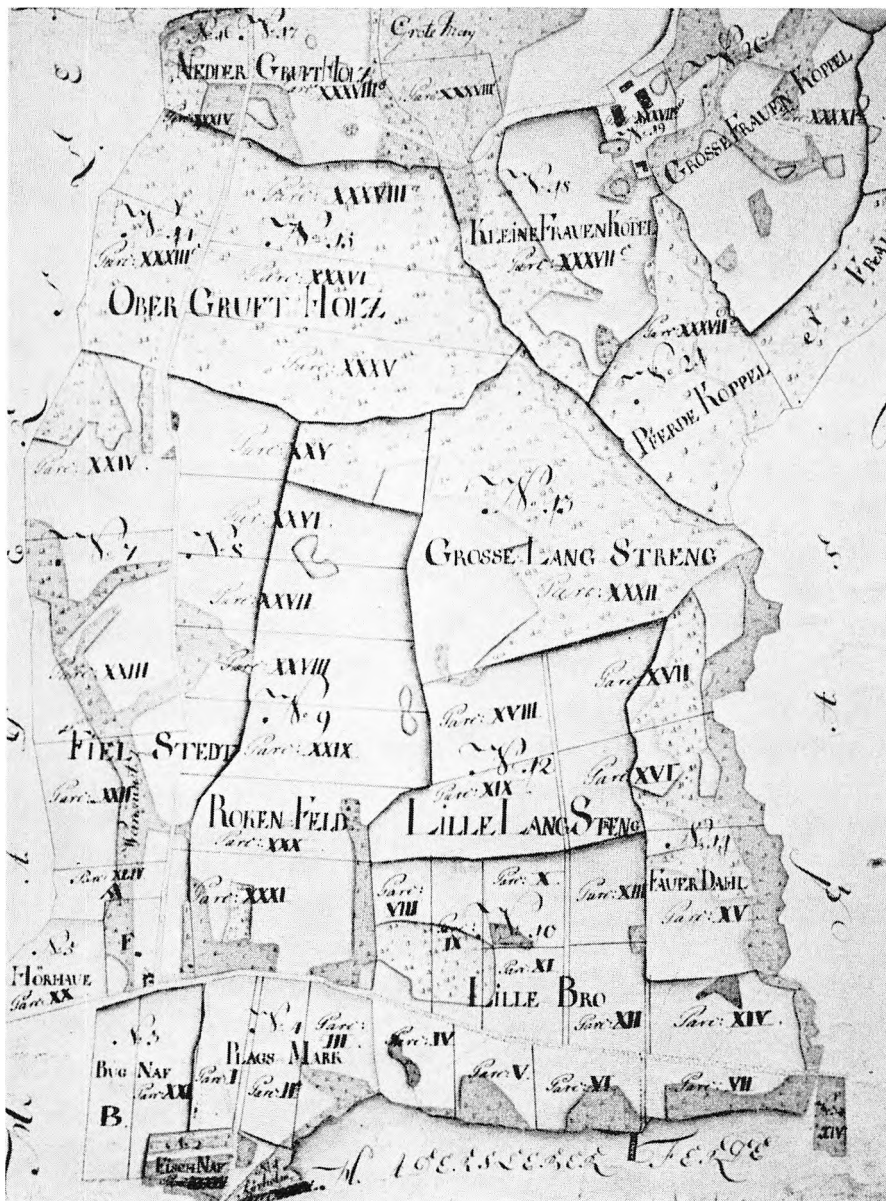 No 16 No 17
Crote May
NEDDER GRUFT HOLZ
Parc: XXXVIII
Parc: XXXVIII
Parc: XXXIV
No 20
No 19
GROSSE FRAUEN KOPPEL
XXXXI
Parc: XXXVIII
No 18
KLEINE FRAUEN KOPEL
Parc: XXXVII
No 15
Parc: XXXIII
Parc: XXXVI
OBER GRUFT HOLZ
Parc: XXXV
Parc: XXXVII
No 21
PFERDE KOPPEL
Parc: XXIV
Parc: XXV
Parc: XXVI
No 13
No 7
No 8
GROSSE LANG STRENG
Parc: XXXII
Parc: XXVII
Parc: XXIII
Parc: XXVIII
Parc: XVII
No 9
Parc: XVIII
FIEL STEDT
Parc: XXIX
No 12
Parc: XIX
Parc: XVI
Parc: XXII
ROKEN FELD
LILLE LANG STENG
Parc: XXX
FAUER DAHL
Parc: XLIV
Parc: XXXI
Parc: VIII
Parc: X
Parc: XIII
Parc: XV
No 10
Parc: IX
F
HÖRHAUE
Parc: XX
Parc: XI
LILLE BRO
Parc: XII
Parc: XIV
No 3
No 4
Parc: III
Parc: IV
BUG NAF
PLAGS MARK
Parc: XXI
Parc: I
Parc: II
Parc: V
Parc: VI
Parc: VII
B
No 2
ELSCH NAF
XIV
HADERSLEBER FERDE